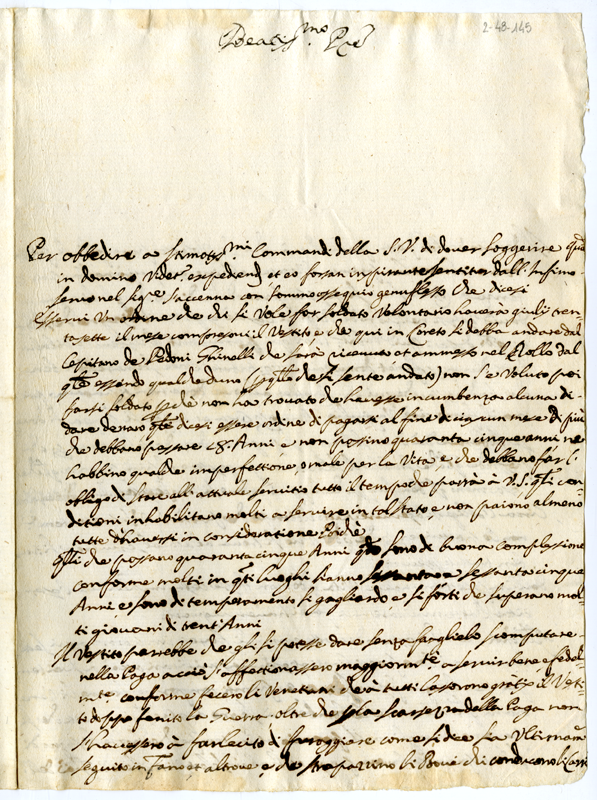 2-48-145
Beatiss.mo P.re
Per obbedire a stimatiss.mi Commandi della S.V. di dover soggerire
in domino expedien et eo forsan inspirante sentito dall'Infimo
servo nel s'accenna con sommo ossequio genuflesso che dicesi
esservi Un ordine che chi si Vole far soldato Volontario haverà giulij tren
tasette il mese compresovi il Vestito e che qui in Loreto si debba andare dal
Capitano de Pedoni Ghinelli che sarà ricevuto et ammesso nel Rollo dal
q.le essendo qualcheduno che si sente andato) non s'e Voluto poi
farsi soldato non ha trovato che havesse incumbenza alcuna di
dare denaro dicesi essere ordine di pagarsi al fine di ciascun mese di più
che debbano passare 18. Anni e non passino quaranta cinque anni ne
habbino qualche imperfettione o male per la Vita, e che debbano far l'
obligo di stare all'attuale servitio tutto il tempo che parrà a V.S. q.li con
ditioni inhabilitano molti a servire in tal stato e non paiono almeno
tutte d'haversi in consideratione Poiche
q.lli che passano quaranta cinque Anni q.do sono di buona complessione
conforme molti in q.ti luoghi hanno sessanta o sessanta cinque
Anni, e sono di temperamento si gagliardo e si forti che superano mol
ti giovani di trent'Anni
Il Vestito parrebbe che gli si potesse dare senza farglielo scomputare
nella Paga acciò s'affettionassero maggiorm.te a servir bene e fedel
m.te conforme fecero li Venetiani che à tutti lasciorono gratis il Vesti
to doppo finito la Guerra oltre che p la scarsezza della Paga non
s'havessero à far lecito di foraggiare come si dice sia Ultimam.te
seguito in Fano et altrove, e che strapazzino li Bovi che conducono li Carri